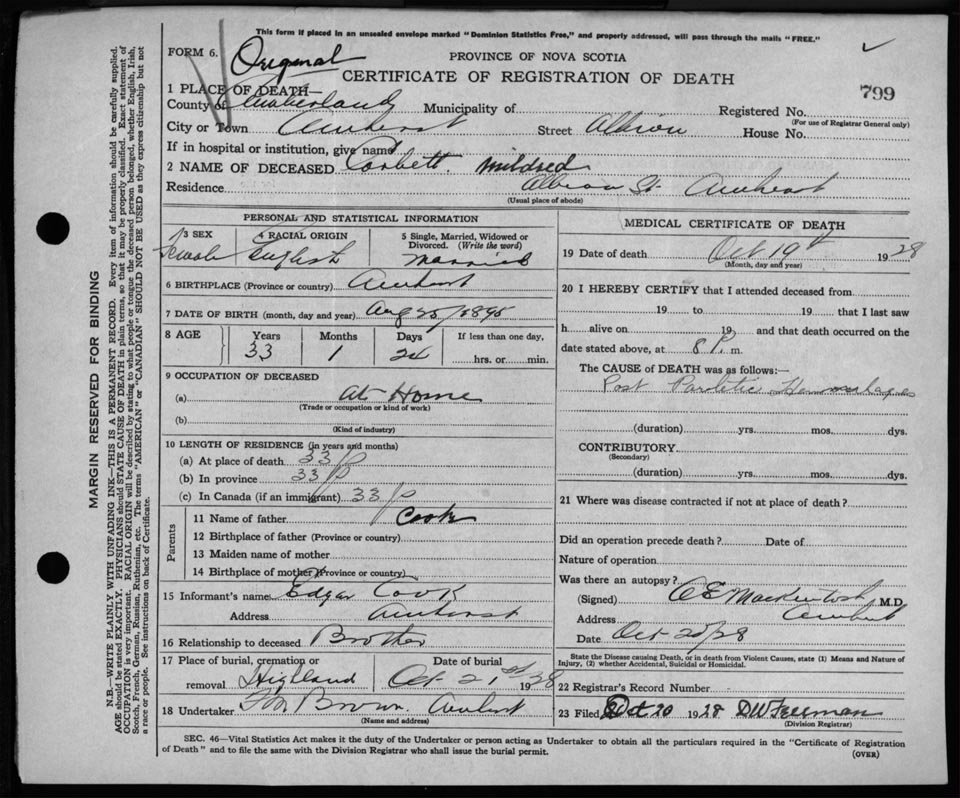 This form if placed in an unsealed envelope marked "Dominion Statistics Free," and properly addressed, will pass through the mails "FREE."
FORM 6.
Original
PROVINCE OF NOVA SCOTIA
CERTIFICATE OF REGISTRATION OF DEATH
799
1 PLACE OF DEATH—
County of Cumberland Municipality of Registered No.
(For use of Registrar General only)
City or Town Amherst Street Albion House No.
If in hospital or institution, give name
2 NAME OF DECEASED Corbett. Mildred
Residence Albion St. Amherst
(Usual place of abode)
PERSONAL AND STATISTICAL INFORMATION
3 SEX 4 RACIAL ORIGIN 5 Single, Married, Widowed or Divorced. (Write the word)
Female English Married
6 BIRTHPLACE (Province or country) Amherst
7 DATE OF BIRTH (month, day and year) Aug 25/1895
8 AGE Years Months Days If less than one day,
33 1 24 hrs. or min.
9 OCCUPATION OF DECEASED
(a) At Home
(Trade or occupation or kind of work)
(b)
(Kind of industry)
10 LENGTH OF RESIDENCE (in years and months)
(a) At place of death 33
(b) In province 33
(c) In Canada (if an immigrant) 33
Parents
11 Name of father Cook
12 Birthplace of father (Province or country)
13 Maiden name of mother
14 Birthplace of mother (Province or country)
15 Informant's name Edgar Cook
Address Amherst
16 Relationship to deceased Brother
17 Place of burial, cremation or removal Highland Date of burial Oct. 21st 1928
18 Undertaker F M Brown Amherst
(Name and address)
MEDICAL CERTIFICATE OF DEATH
19 Date of death Oct 19th 1928
(Month, day and year)
20 I HEREBY CERTIFY that I attended deceased from
19 to 19 that I last saw
h alive on 19 and that death occurred on
date stated above, at 8 P. m.
The CAUSE of DEATH was as follows:—
Post Hemorrhage
(duration) yrs. mos. dys.
CONTRIBUTORY
(Secondary)
(duration) yrs. mos. dys.
21 Where was disease contracted if not at place of death?
Did an operation precede death? Date of
Nature of operation
Was there an autopsy?
(Signed) C E Mackintosh M.D.
Address Amherst
Date Oct 20/28
State the Disease causing Death, or in death from Violent Causes, state (1) Means and Nature of
Injury, (2) whether Accidental, Suicidal or Homicidal.
22 Registrar's Record Number
23 Filed Oct 20 1928 DW Freeman
(Division Registrar)
SEC. 46—Vital Statistics Act makes it the duty of the Undertaker or person acting as Undertaker to obtain all the particulars required in the "Certificate of Registration
of Death" and to file the same with the Division Registrar who shall issue the burial permit.
(OVER)
MARGIN RESERVED FOR BINDING
N.B.—WRITE PLAINLY WITH UNFADING INK—THIS IS A PERMANENT RECORD. Every item of information should be carefully supplied.
AGE should be stated EXACTLY. PHYSICIANS should STATE CAUSE OF DEATH in plain terms, so that it may be properly classified. Exact statement of
OCCUPATION is very important. RACIAL ORIGIN will be described by stating to what people or tongue the deceased person belonged, whether English, Irish,
Scotch, French, German, Russian, Ruthenian, etc. The terms "AMERICAN" or "CANADIAN" SHOULD NOT BE USED as they express citizenship but not
a race or people. See instructions on back of Certificate.